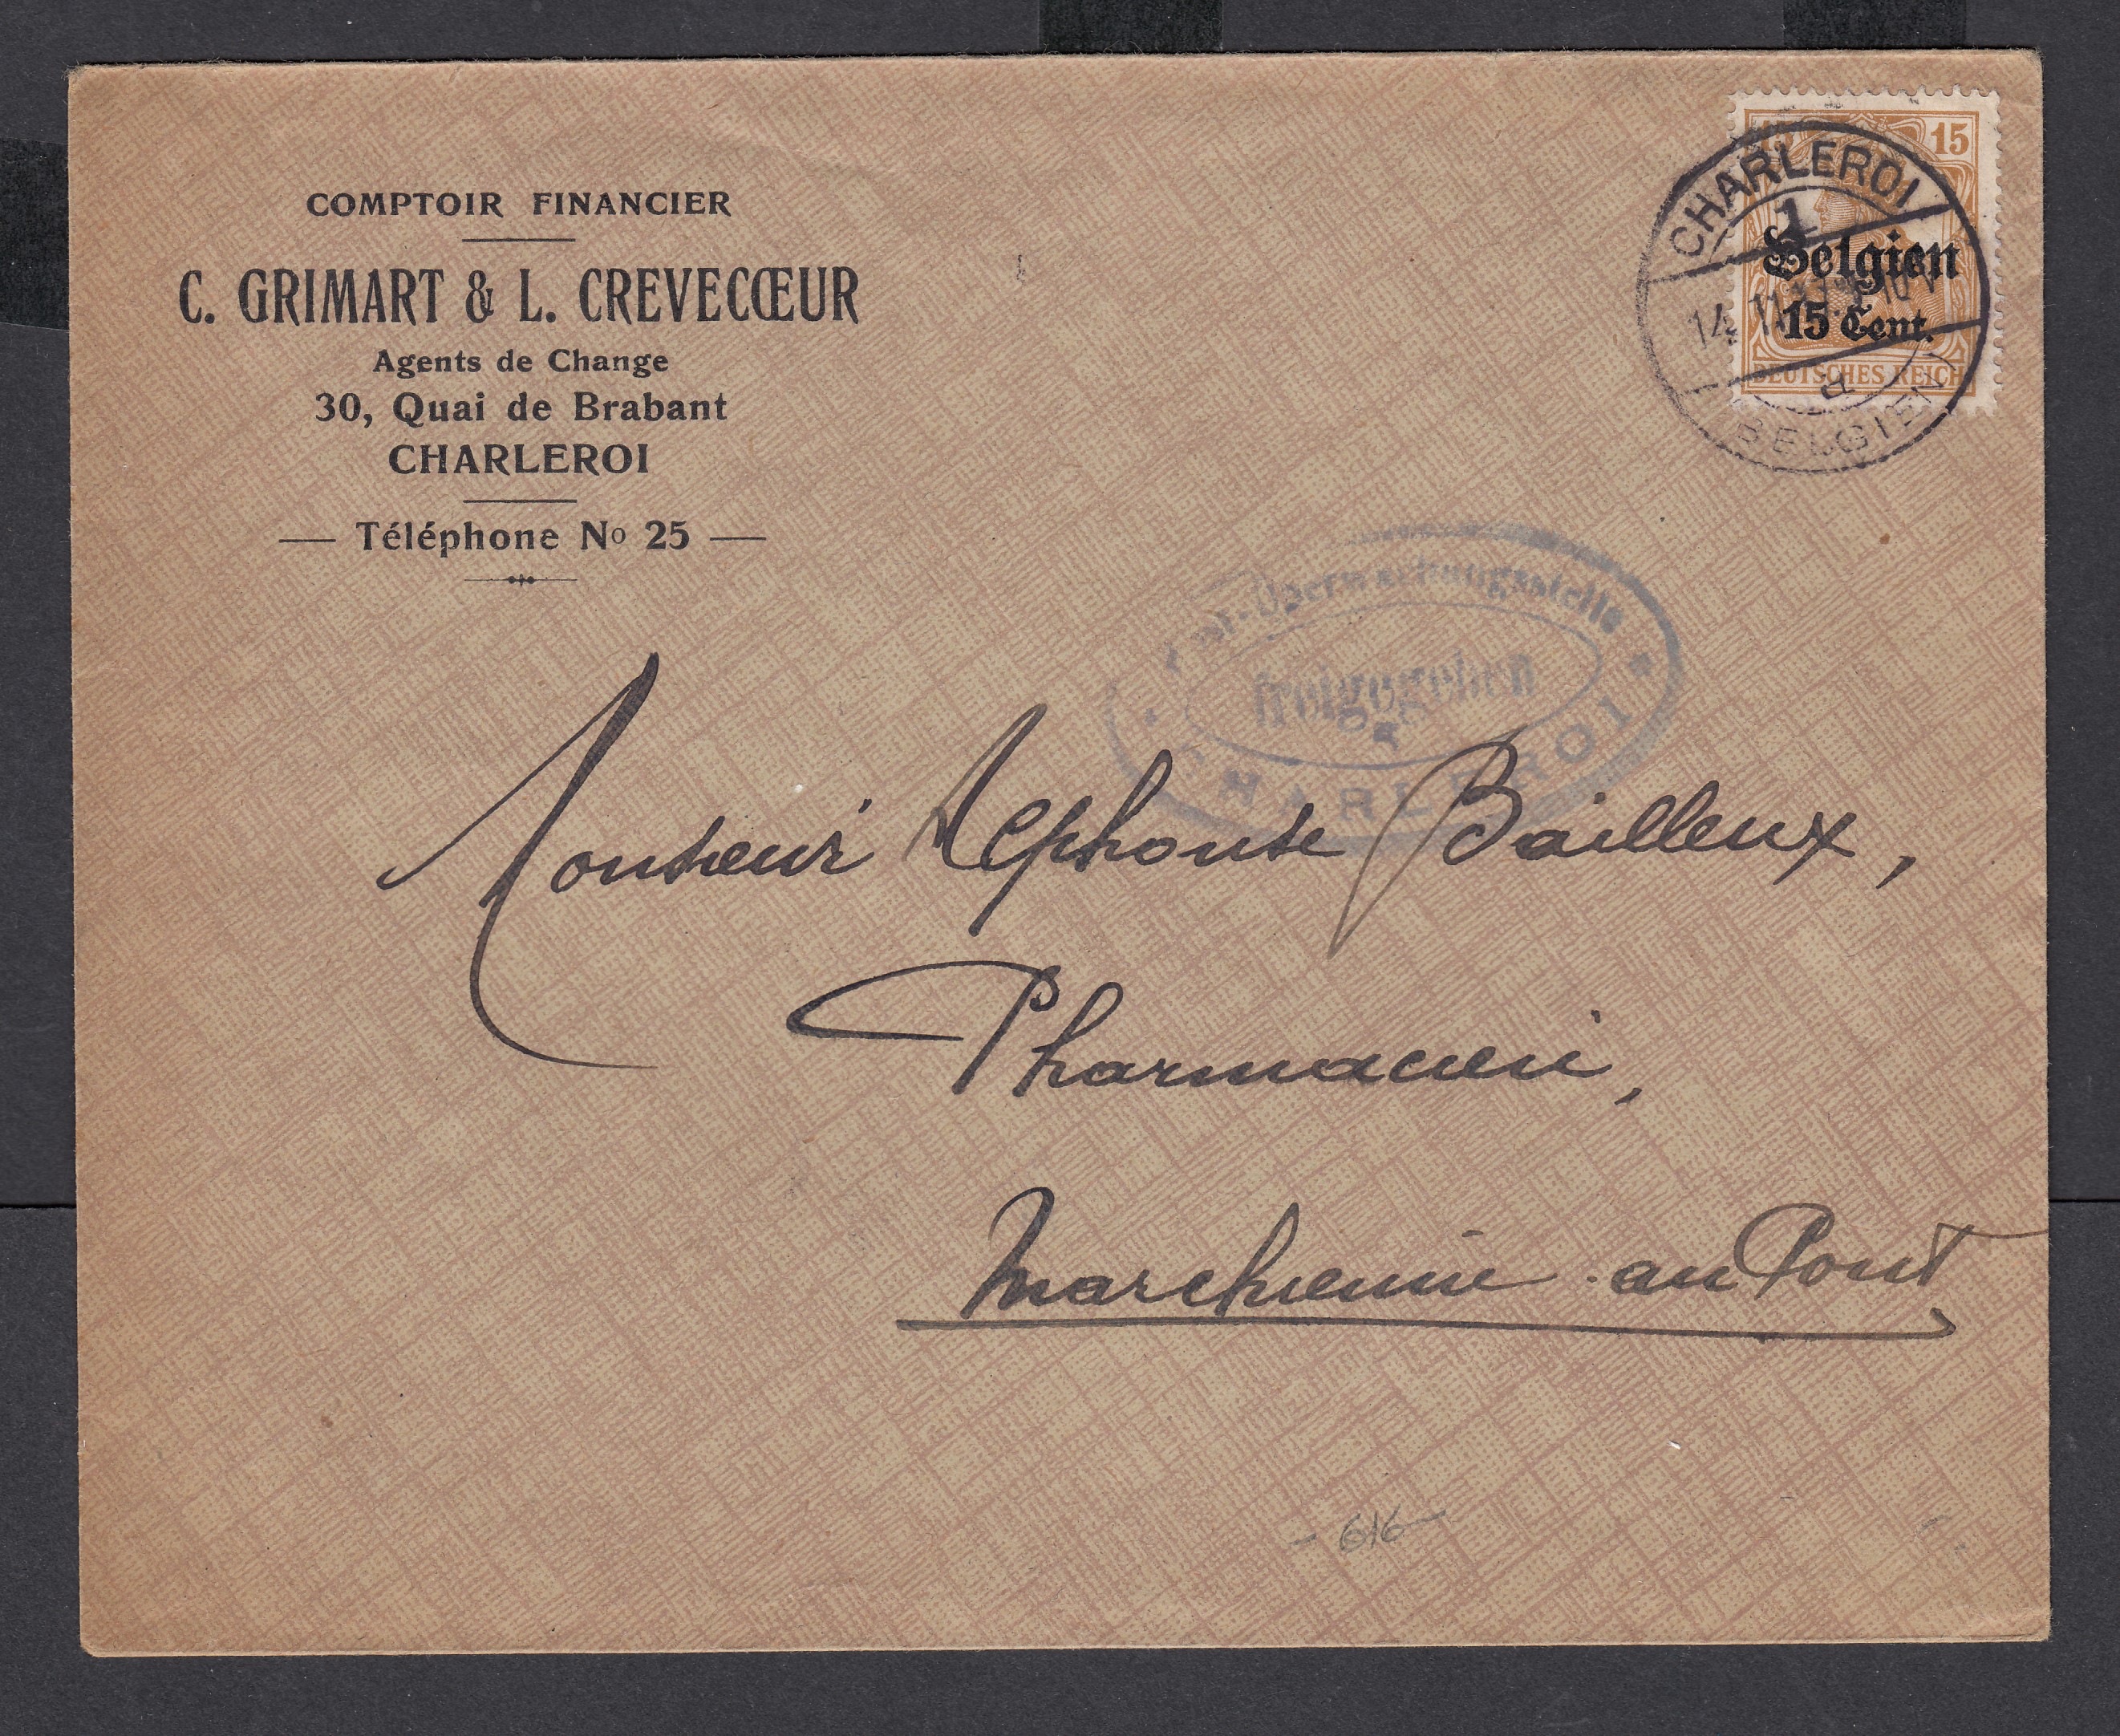 COMPTOIR FINANCIER
C. GRIMART & L. CREVECŒUR
Agents de Change
30, Quai de Brabant
CHARLEROI
Téléphone No 25
15
Belgien
15 Cent.
DEUTSCHES REICH
CHARLEROI
1
14. 11.
a
BELGIEN
-Überwachungsstelle
freigegeben
CHARLEROI
Monsieur Alphonse Bailleux,
Pharmacien,
Marchienne au Pont
- 616 -